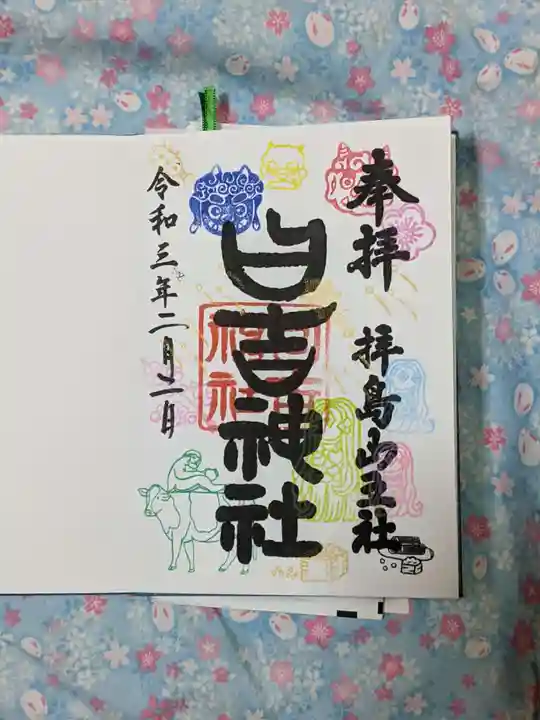 奉拝
拝島山王社
日吉神社
令和三年二月二日